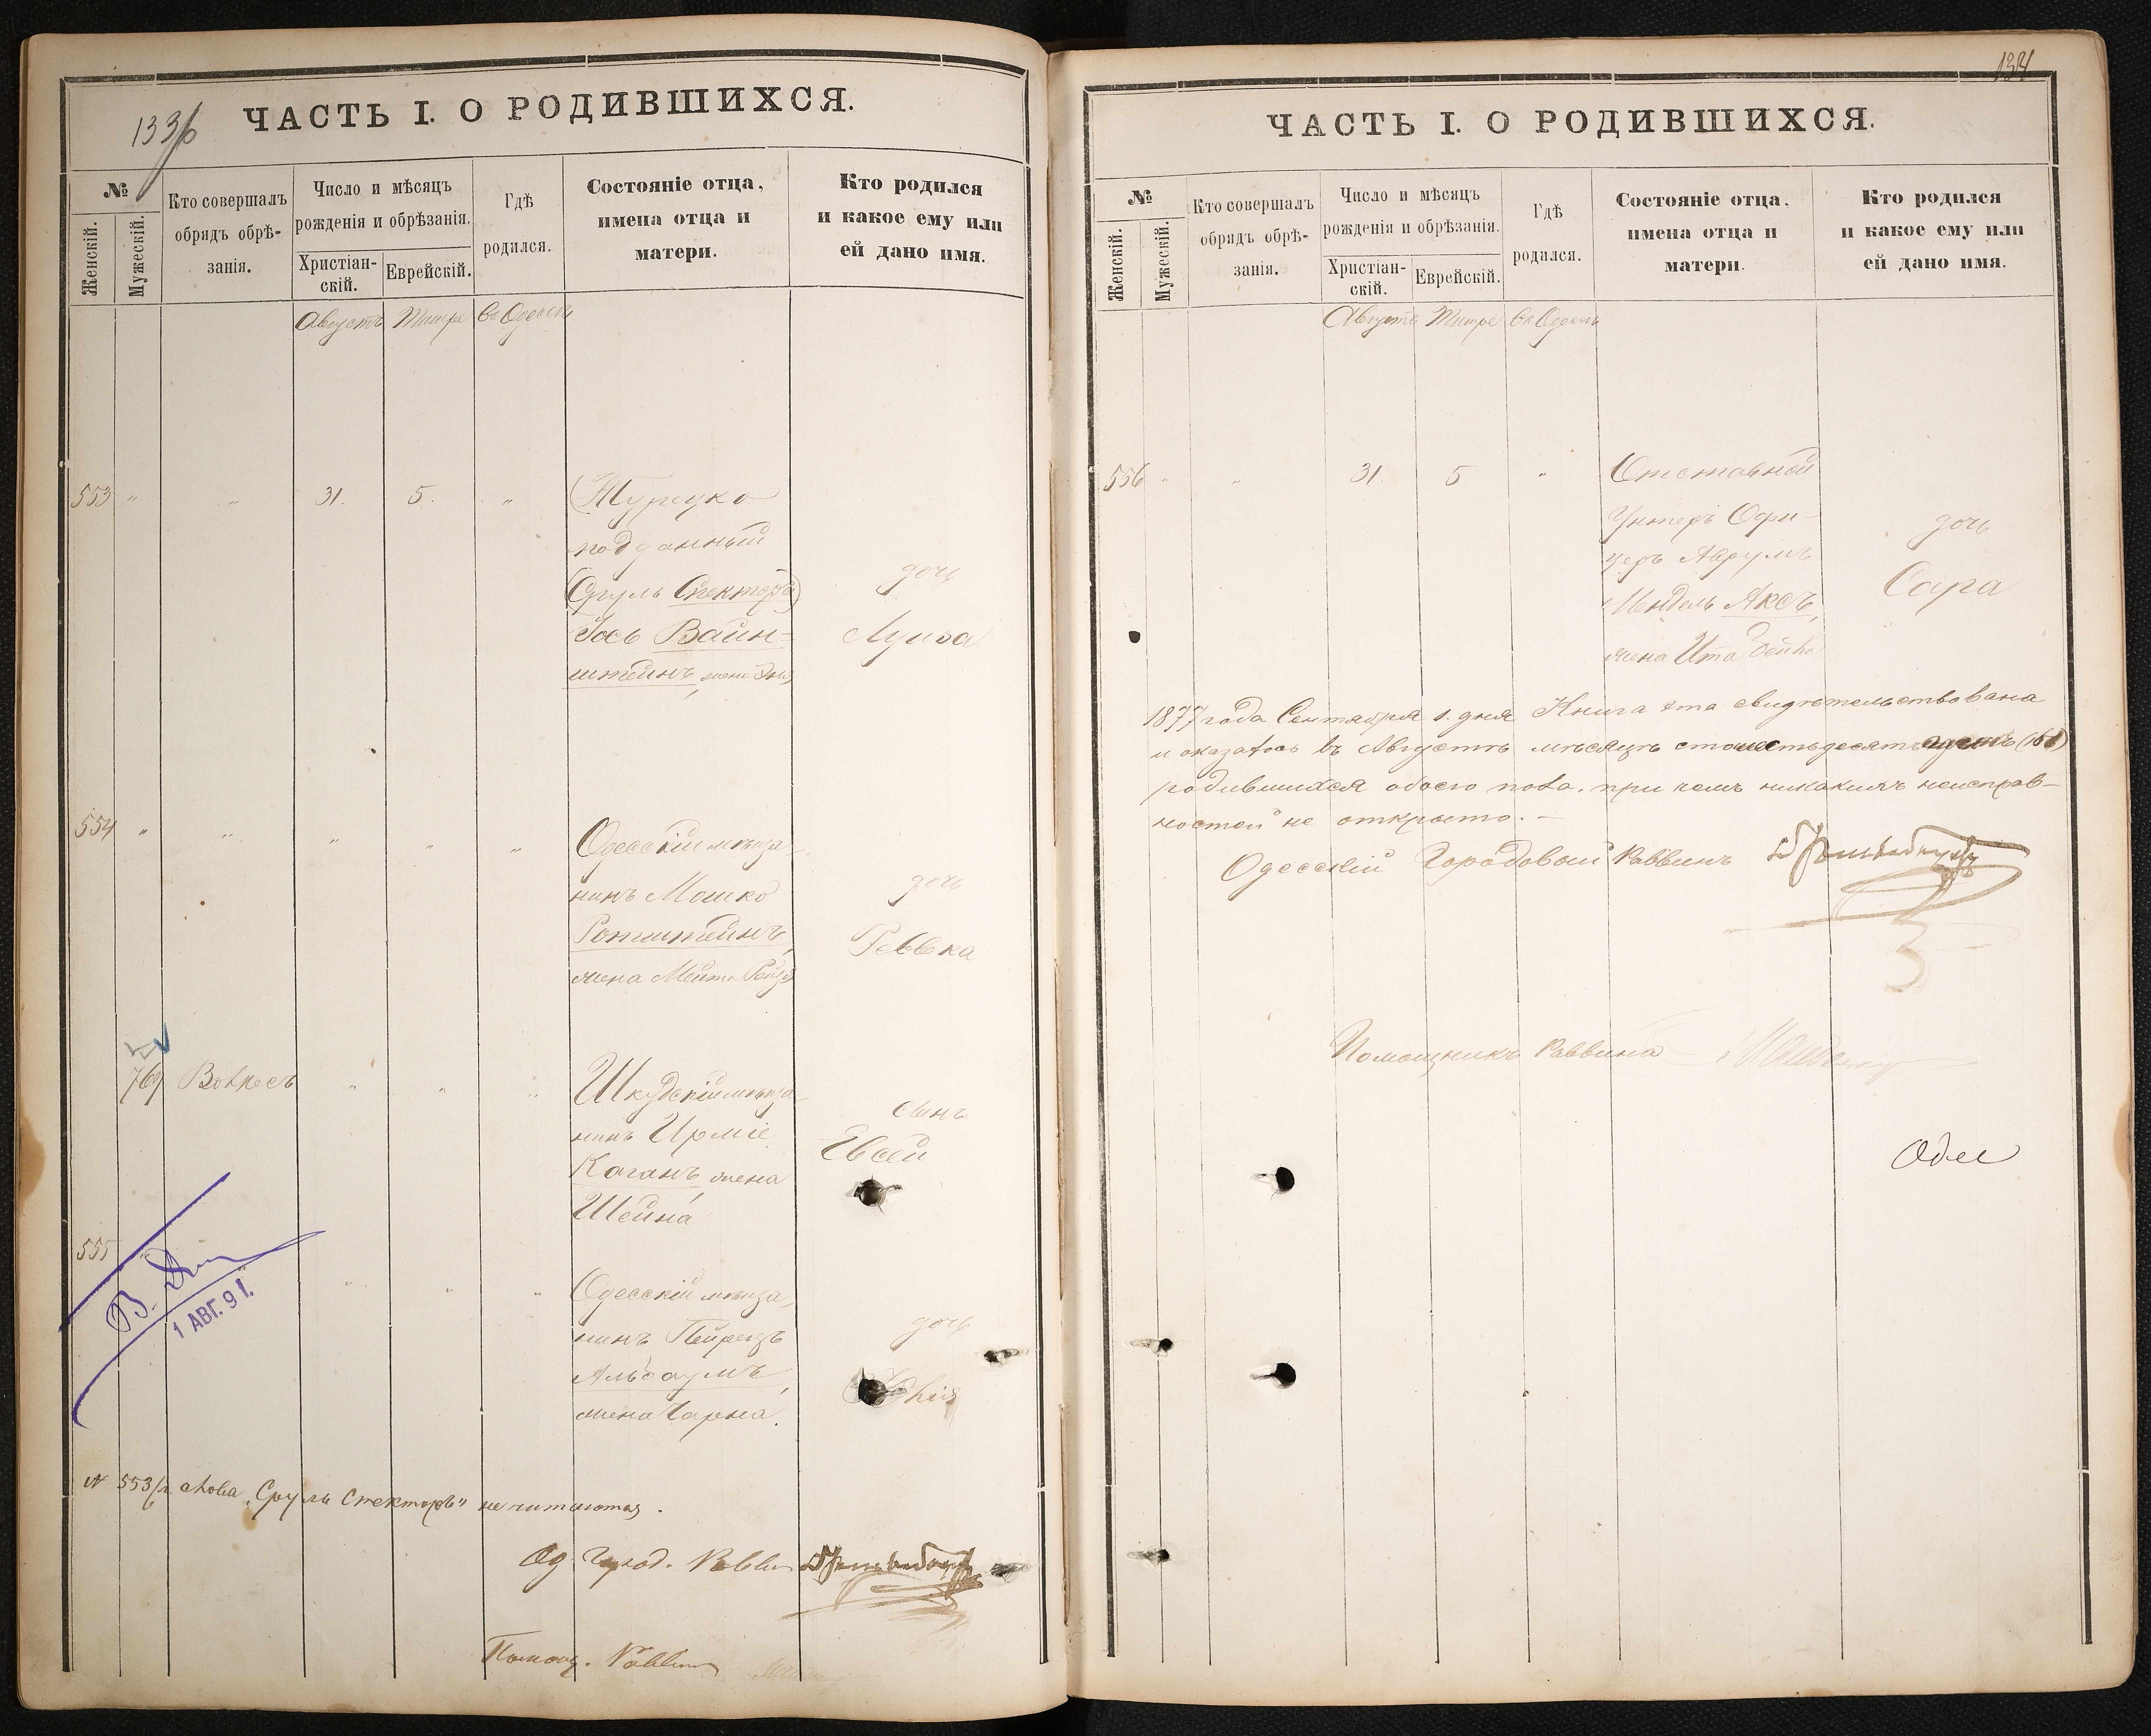 133/б
ЧАСТЬ I. О РОДИВШИХСЯ.
№
Женскій.
Мужескій.
Кто совершалъ
обрядъ обрѣ-
занія.
Число и мѣсяцъ
рожденія и обрѣзанія.
Христіан-
скій.
Еврейскій.
Гдѣ
родился.
Состояніе отца,
имена отца и
матери.
Кто родился
и какое ему или
ей дано имя.
Августъ Тишре Въ Одессѣ
553 " " 31. 5. "
Турецко
подданный
(Сруль Спекторъ)
Іось Вайн-
штейнъ, жена
дочь
Луиза
554 " " " " "
Одесскій мѣща-
нинъ Мошко
Ротштейнъ,
жена Мейта Рейзя
дочь
Реввека
769 Волкесъ " " "
Шкудскій мѣща-
нинъ Ирміе
Каганъ, жена
Шейна
сынъ
Евсей
555 " " " "
Одесскій мѣща-
нинъ Пейрецъ
Альбаумъ,
жена Чарна.
дочь
1 АВГ. 91.
N 553/б слова "Сруль Спекторъ" не читаются.
Од. Город. Раввин
Помощ. Раввина
134
ЧАСТЬ I. О РОДИВШИХСЯ.
№
Женскій.
Мужескій.
Кто совершалъ
обрядъ обрѣ-
занія.
Число и мѣсяцъ
рожденія и обрѣзанія.
Христіан-
скій.
Еврейскій.
Гдѣ
родился.
Состояніе отца,
имена отца и
матери.
Кто родился
и какое ему или
ей дано имя.
Августъ Тишре Въ Одессѣ
556 " " 31. 5 "
Отставной
Унтеръ Офи-
церъ Аврумъ
Мендель Аксъ,
жена Ита Бейла
дочь
Сара
1877 года Сентября 1. дня Книга эта свидѣтельствована
и оказалось въ Августѣ мѣсяцѣ сто шестьдесятъ
родившихся обоего пола, при чемъ никакихъ неисправ-
ностей не открыто. —
Одесскій Городовой Раввинъ
Помощникъ Раввина